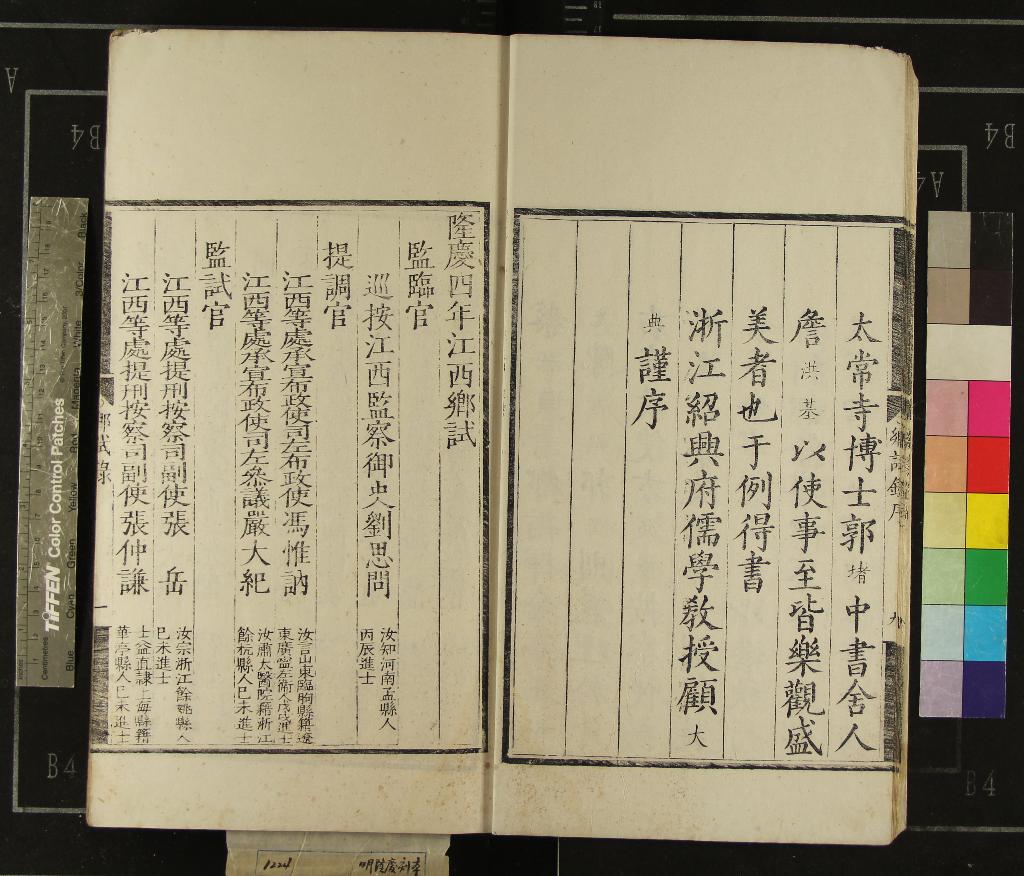 太常寺博士郭堵中書舍人
詹洪基以使事至皆樂觀盛
美者也于例得書
浙江紹興府儒學教授顧大
典謹序
鄉試錄序
九
隆慶四年江西鄉試
監臨官
巡按江西監察御史劉思問
汝知河南孟縣人
丙辰進士
提調官
江西等處承宣布政使司左布政使馮惟訥
汝言山東臨朐縣籍遼
東廣寧左衛人戊戌進士
江西等處承宣布政使司左參議嚴大紀
汝肅太醫院籍浙江
餘杭縣人己未進士
監試官
江西等處提刑按察司副使張岳
汝宗浙江餘姚縣人
己未進士
江西等處提刑按察司副使張仲謙
士益直隸上海縣籍
華亭縣人己未進士
鄉試錄
一
TIFFEN Color Control Patches
Blue
Cyan
Green
Yellow
Red
Magenta
White
3/Color
Black
Centimetres
Inches
A
B4
B4
A4
B4
B4
1224
明隆慶刻本